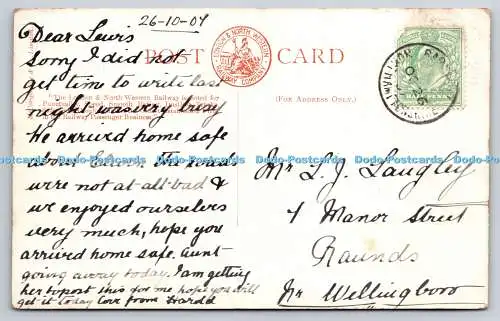 26-10-04
Dear Lewis
Sorry I did not
get time to write last
night was very busy
We arrived home safe
about The roads
were not at all bad &
we enjoyed ourselves
very much, hope you
arrived home safe. Aunt
going away today. I am getting
her to post this for me hope you will
get it today from
POST CARD
LONDON & NORTH WESTERN
RAILWAY COMPANY
The London & North Western Railway is noted for
Punctuality, Speed, Smooth
Railway Passenger Business
(FOR ADDRESS ONLY.)
Mr L. J. Langley
4 Manor Street
Raunds
Nr Wellingboro
Dodo-Postcards Dodo-Postcards Dodo-Postcards Dodo-Postcards Dodo-Postcards Dodo-Postcards